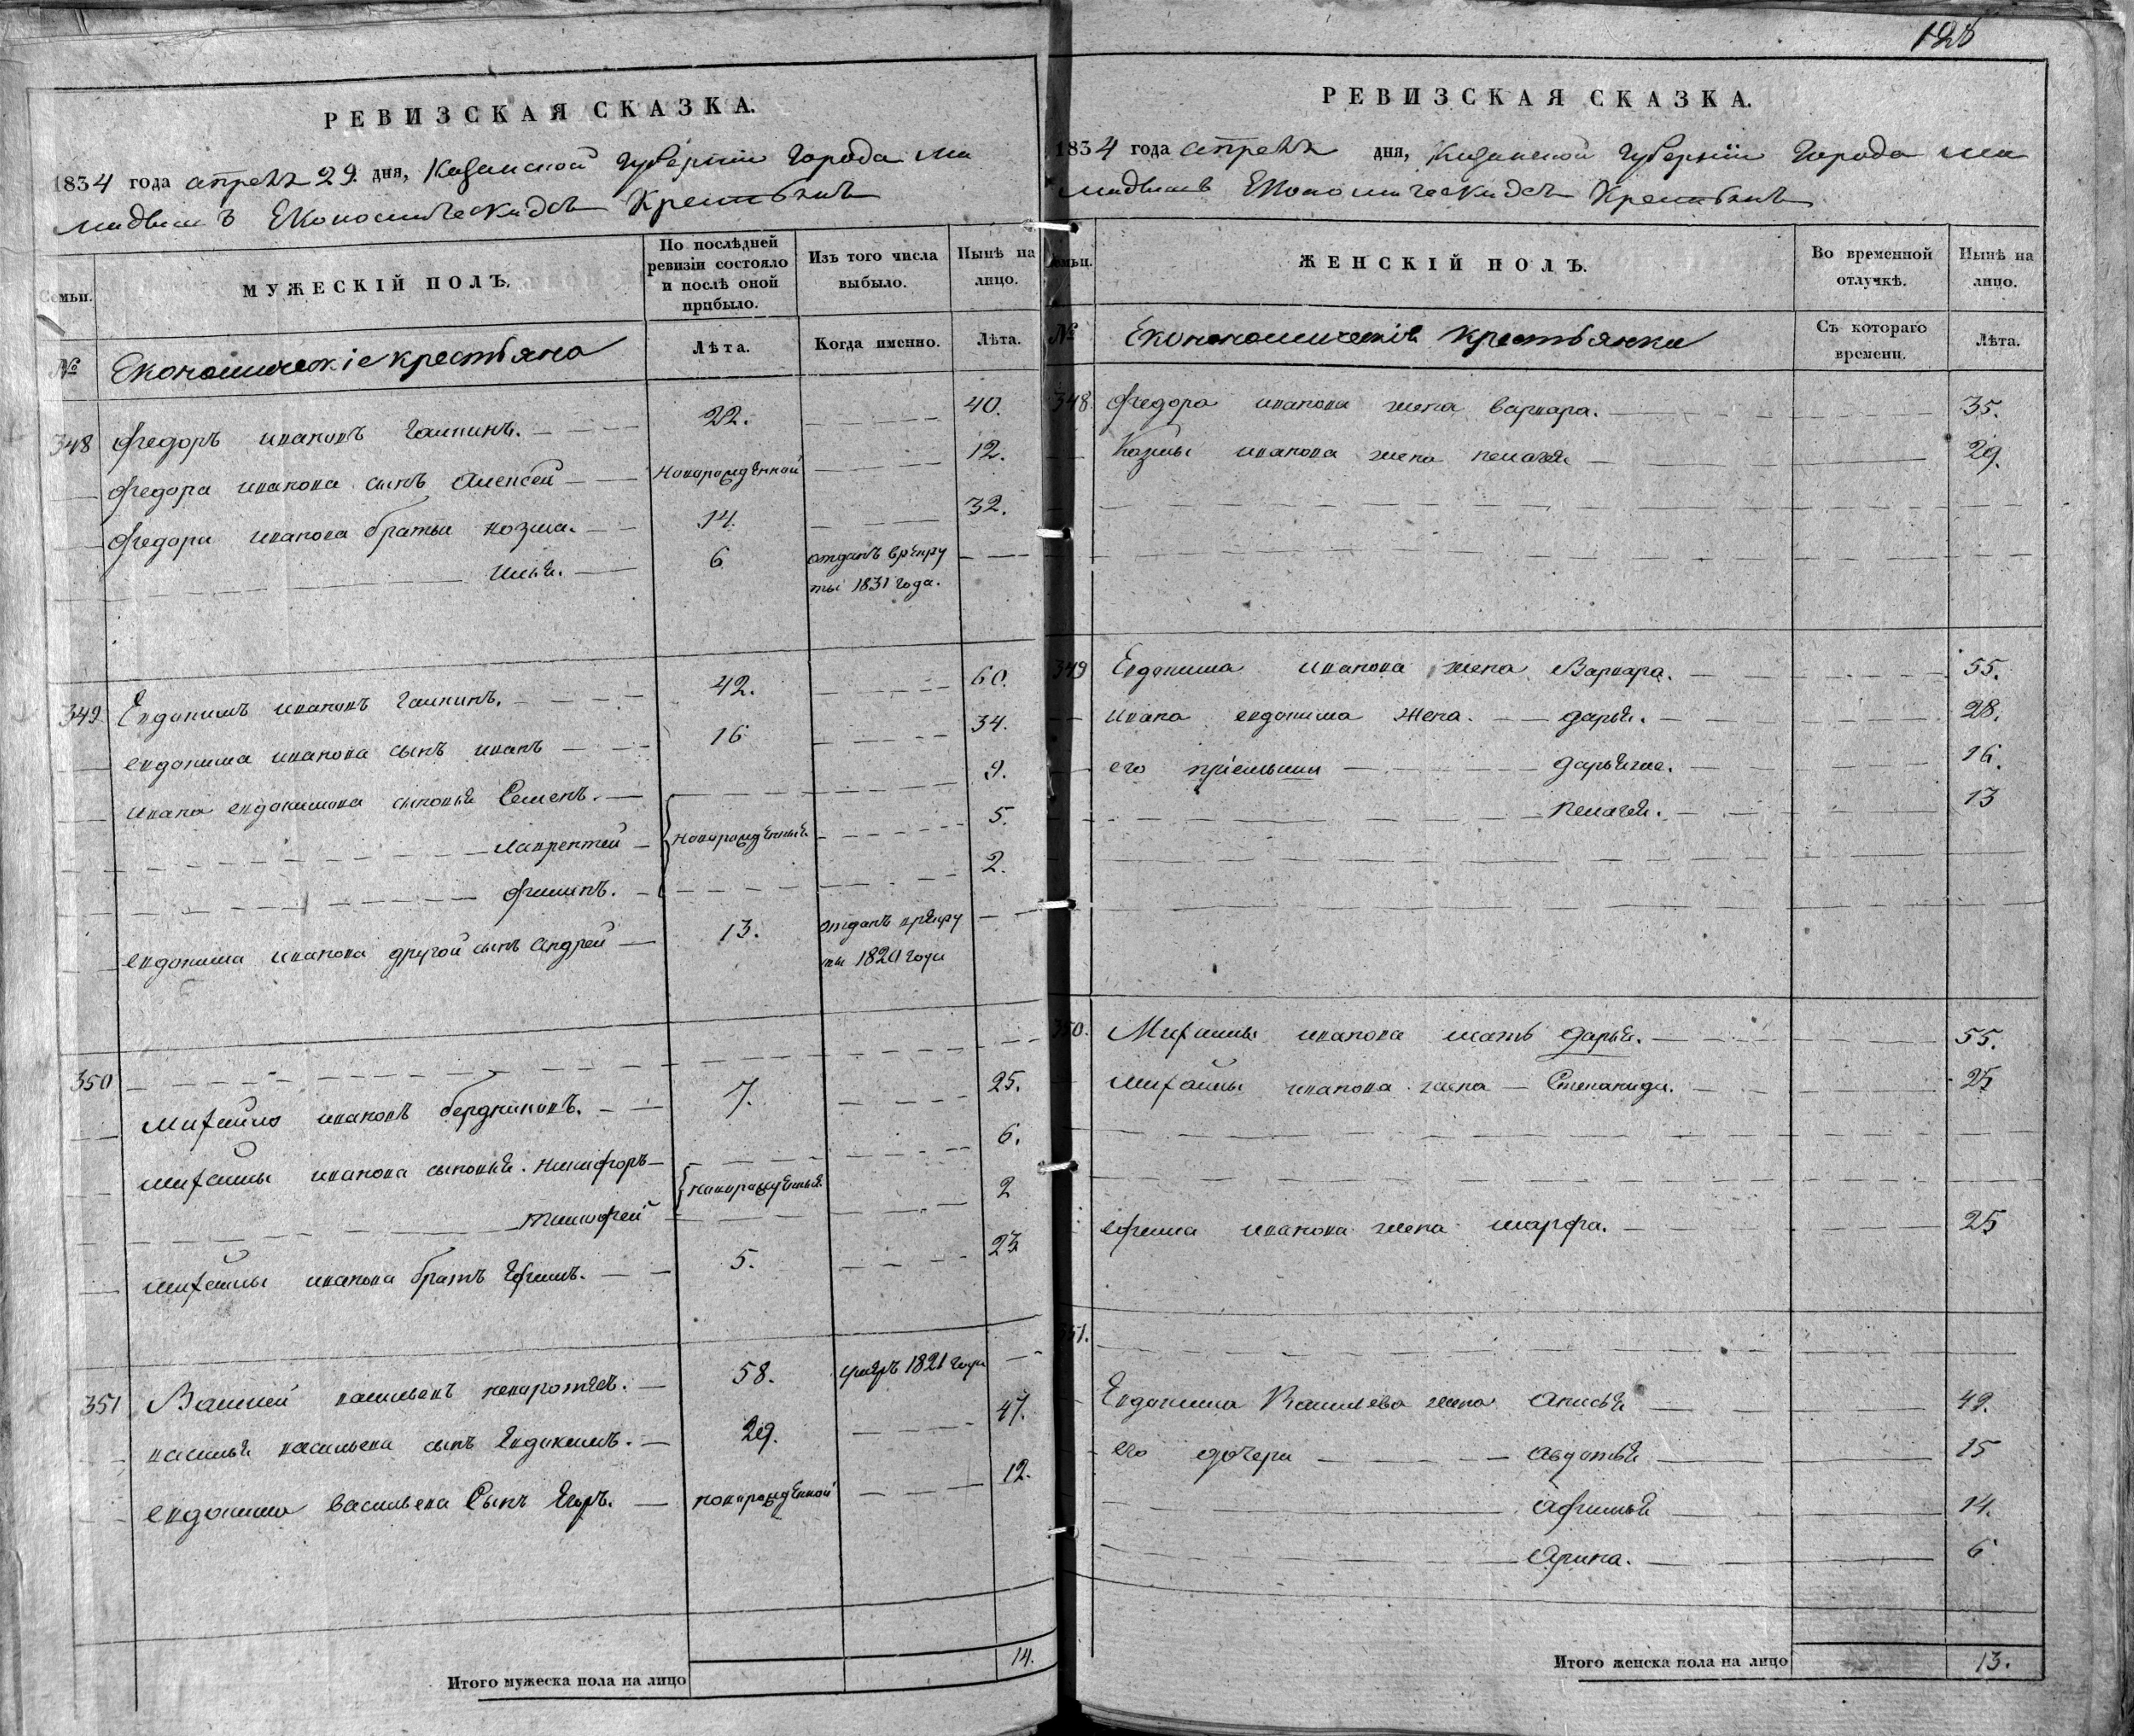 128
РЕВИЗСКАЯ СКАЗКА.
1834 года апреля 29. дня, Казанской Губернии Города Ма
мадыша Економическихъ Крестьянъ
Семьи.
МУЖЕСКІЙ ПОЛЪ.
По послѣдней ревизіи состояло и послѣ оной прибыло.
Изъ того числа выбыло.
Нынѣ на лицо.
№
Економическіе крестьяна
Лѣта.
Когда именно.
Лѣта.
348 Федоръ ивановъ Галкинъ. 22. 40.
Федора иванова сынъ Алексей Новорожденной 12.
Федора иванова братья козма. 14. 32.
илья. 6 отданъ врекру
ты 1831 года.
349 Евдокимъ ивановъ Галкинъ. 42. 60.
евдокима иванова сынъ иванъ 16 34.
ивана евдокимова сыновья Семенъ. 9.
лаврентей новорожденныя 5.
Филипъ. 2.
евдокима иванова другой сынъ Андрей 13. отданъ врекру
ты 1820 года
350
михайло ивановъ бердниковъ. 7. 25.
михайлы иванова сыновья. никифоръ 6.
новорожденныя
тимофей 2
михайлы иванова братъ Ефимъ. 5. 23
351 Василей васильевъ 58. умеръ 1821 года
василья васильева сынъ Евдокимъ. 29. 47.
евдокима васильева Сынъ Егоръ. новорожденной 12.
Итого мужеска пола на лицо 14.
РЕВИЗСКАЯ СКАЗКА.
1834 года апреля дня, Казанской Губернии Города Ма
мадыша Економическихъ Крестьянъ
Семьи.
ЖЕНСКІЙ ПОЛЪ.
Во временной отлучкѣ.
Нынѣ на лицо.
№
Еконономическія крестьянки
Съ котораго времени.
Лѣта.
348. Федора иванова жена варвара. 35.
Козмы иванова жена пелагея 29.
349 Евдокима иванова жена Варвара. 55.
ивана евдокима жена. дарья. 28.
его приемыши дарья же. 16.
пелагея. 13
350. Михайлы иванова мать дарья. 55.
михайлы иванова жена Степанида. 25
ефима иванова жена марфа. 25
351.
Евдокима Васильева жена анисья 49.
его дочери авдотья 15
афимья 14.
Арина. 6
Итого женска пола на лицо 13.